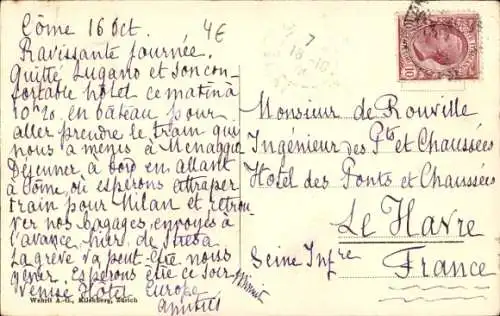 Côme 16 Oct.
4€
Ravissante journée.
Quitté Lugano et son con-
fortable hôtel ce matin à
10h20 en bateau pour
aller prendre le train qui
nous a menés à Menaggio
Déjeuner à bord en allant
à Côme, où espérons attraper
train pour Milan et retrou
ver nos bagages envoyés à
l'avance hier de
La grève va peut être nous
gêner. Espérons être ce soir
Venise Hôtel Europe
amitiés
Monsieur de Rouville
Ingénieur des Pts et Chaussées
Hotel des Ponts et Chaussées
Le Havre
Seine Infre
France
Wehrli A.-G., Kilchberg, Zürich